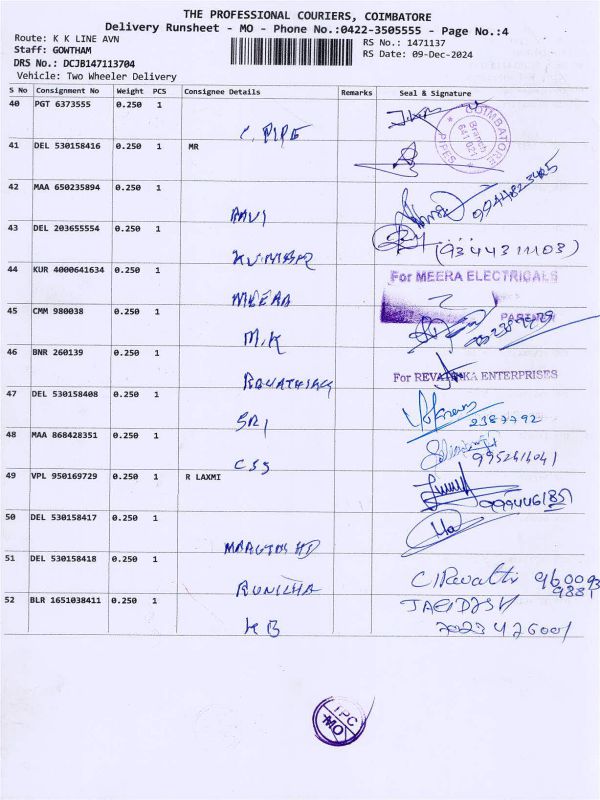 THE PROFESSIONAL COURIERS, COIMBATORE
Delivery Runsheet - MO - Phone No.:0422-3505555 - Page No.:4
Route: K K LINE AVN
RS No.: 1471137
Staff: GOWTHAM
RS Date: 09-Dec-2024
DRS No.: DCJB147113704
Vehicle: Two Wheeler Delivery
S No Consignment No Weight PCS Consignee Details Remarks Seal & Signature
40 PGT 6373555 0.250 1
C. PIPE
COIMBATORE
Branch
641 021
PIPES
41 DEL 530158416 0.250 1 MR
42 MAA 650235894 0.250 1
RAVI
43 DEL 203655554 0.250 1
(9344311103)
44 KUR 4000641634 0.250 1
MEERA
For MEERA ELECTRICALS
45 CMM 980038 0.250 1
M.K
46 BNR 260139 0.250 1
For REVATHIKA ENTERPRISES
47 DEL 530158408 0.250 1
SRI
2387792
48 MAA 868428351 0.250 1
CSS
49 VPL 950169729 0.250 1 R LAXMI
50 DEL 530158417 0.250 1
51 DEL 530158418 0.250 1
C. Revathi
52 BLR 1651038411 0.250 1
KB
TPC
MO